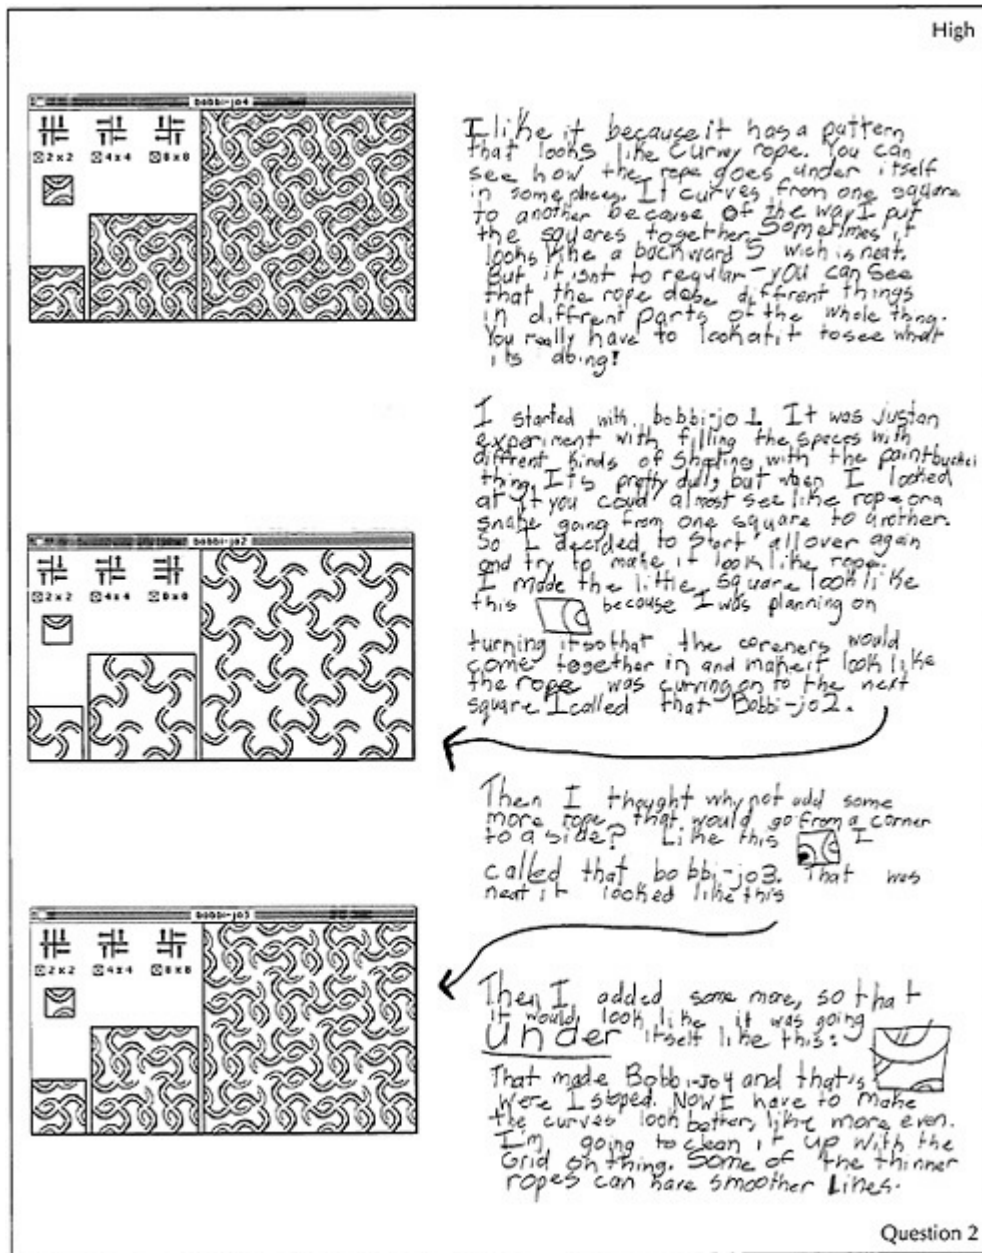 High
bobbi-jo4
2x2 4x4 8x8
I like it because it has a pattern
that looks like curvey rope. You can
see how the rope goes under itself
in some places. It curves from one square
to another because of the way I put
the squares together. Sometimes it
looks like a backward S wich is neat.
But it isnt to regular - you can see
that the rope dose diffrent things
in diffrent parts of the whole thing.
You really have to look at it to see what
its doing!
I started with bobbi-jo 1. It was just an
experiment with filling the spaces with
diffrent kinds of shading with the paintbucket
thing. Its pretty dull, but when I looked
at it you coud almost see like rope or a
snake going from one square to another.
So I decided to start all over again
and try to make it look like rope.
I made the little square look like
this because I was planning on
turning it so that the coreners would
come together in and make it look like
the rope was curving on to the next
square. I called that Bobbi-jo2.
bobbi-jo2
2x2 4x4 8x8
Then I thought why not add some
more rope that would go from a corner
to a side? Like this I
called that bobbi-jo3. That was
neat it looked like this
bobbi-jo3
2x2 4x4 8x8
Then I added some more, so that
it would look like it was going
under itself like this:
That made Bobbi-Jo4 and that is
were I stoped. Now I have to make
the curves look better, like more even.
I'm going to clean it up with the
Grid on thing. Some of the thinner
ropes can have smoother Lines.
Question 2